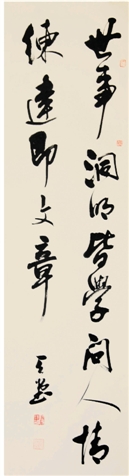 世事洞明皆學問人情
練達即文章